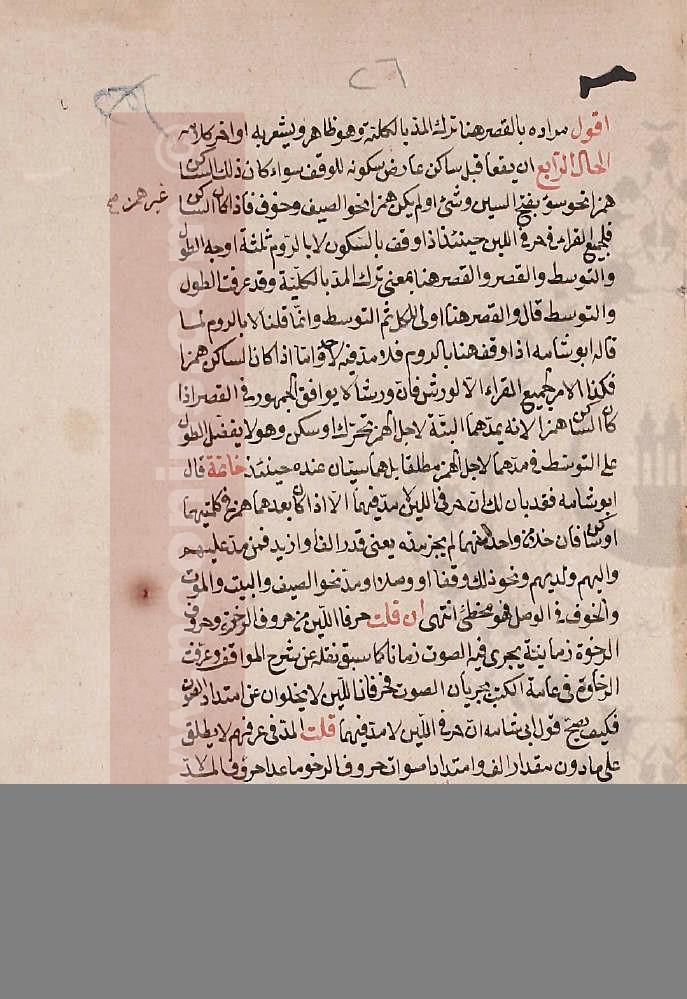 ٢٦
اقول مراده بالقصر هنا ترك المد بالكلية وهو ظاهر ويشعر به اواخر كلامه
الحال الرابع ان يقعا قبل ساكن عارض سكونه للوقف سواء كان ذلك الساكن
همزا نحو سوء بفتح السين وشئ او لم يكن همزا نحو الصيف وخوف فاذا كان الساكن
غير همز صح
فلجميع القراء في حرفي اللين حينئذ اذا وقف بالسكون لا بالروم ثلثة اوجه الطول
والتوسط والقصر والقصر هنا بمعنى ترك المد بالكلية وقد عرفت الطول
والتوسط قال والقصر هنا اولى للكل ثم التوسط وانما قلنا لا بالروم لما
قاله ابو شامه اذا وقف هنا بالروم فلا مد فيه لاحد واما اذا كان الساكن همزا
فكذا الامر لجميع القراء الا لورش فان ورشا لا يوافق الجمهور في القصر اذا
كان الساكن همزا لانه يمدهما البتة لاجل الهمز تحرك او سكن وهو لا يفضل الطول
على التوسط في مدهما لاجل الهمز مطلقا بل هما سيتان عنده حينئذ خاتمة قال
ابو شامه فقد بان لك ان حرفي اللين لا مد فيهما الا اذا كان بعدهما همز في كلمتيهما
او ساكن فان خلا من واحد منهما لم يجز مده يعنى قدر الف او ازيد فمن مد عليهم
واليهم ولديهم ونحو ذلك وقفا او وصلا او مد نحو الصيف والبيت والموت
والخوف في الوصل فهو مخطئ انتهى ان قلت حرفا اللين من حروف الرخوة وحروف
الرخوة زمانية يجرى فيها الصوت زمانا كما سبق نقله عن شرح المواقف وعرفت
الرخاوة في عامة الكتب بجريان الصوت فحرفا اللين لا يخلوان عن امتداد الصوت
فكيف يصح قول ابى شامه ان حرفي اللين لا مد فيهما قلت المد في عرفهم لا يطلق
على ما دون مقدار الف وامتداد اصوات حروف الرخو ما عدا حروف المد لا